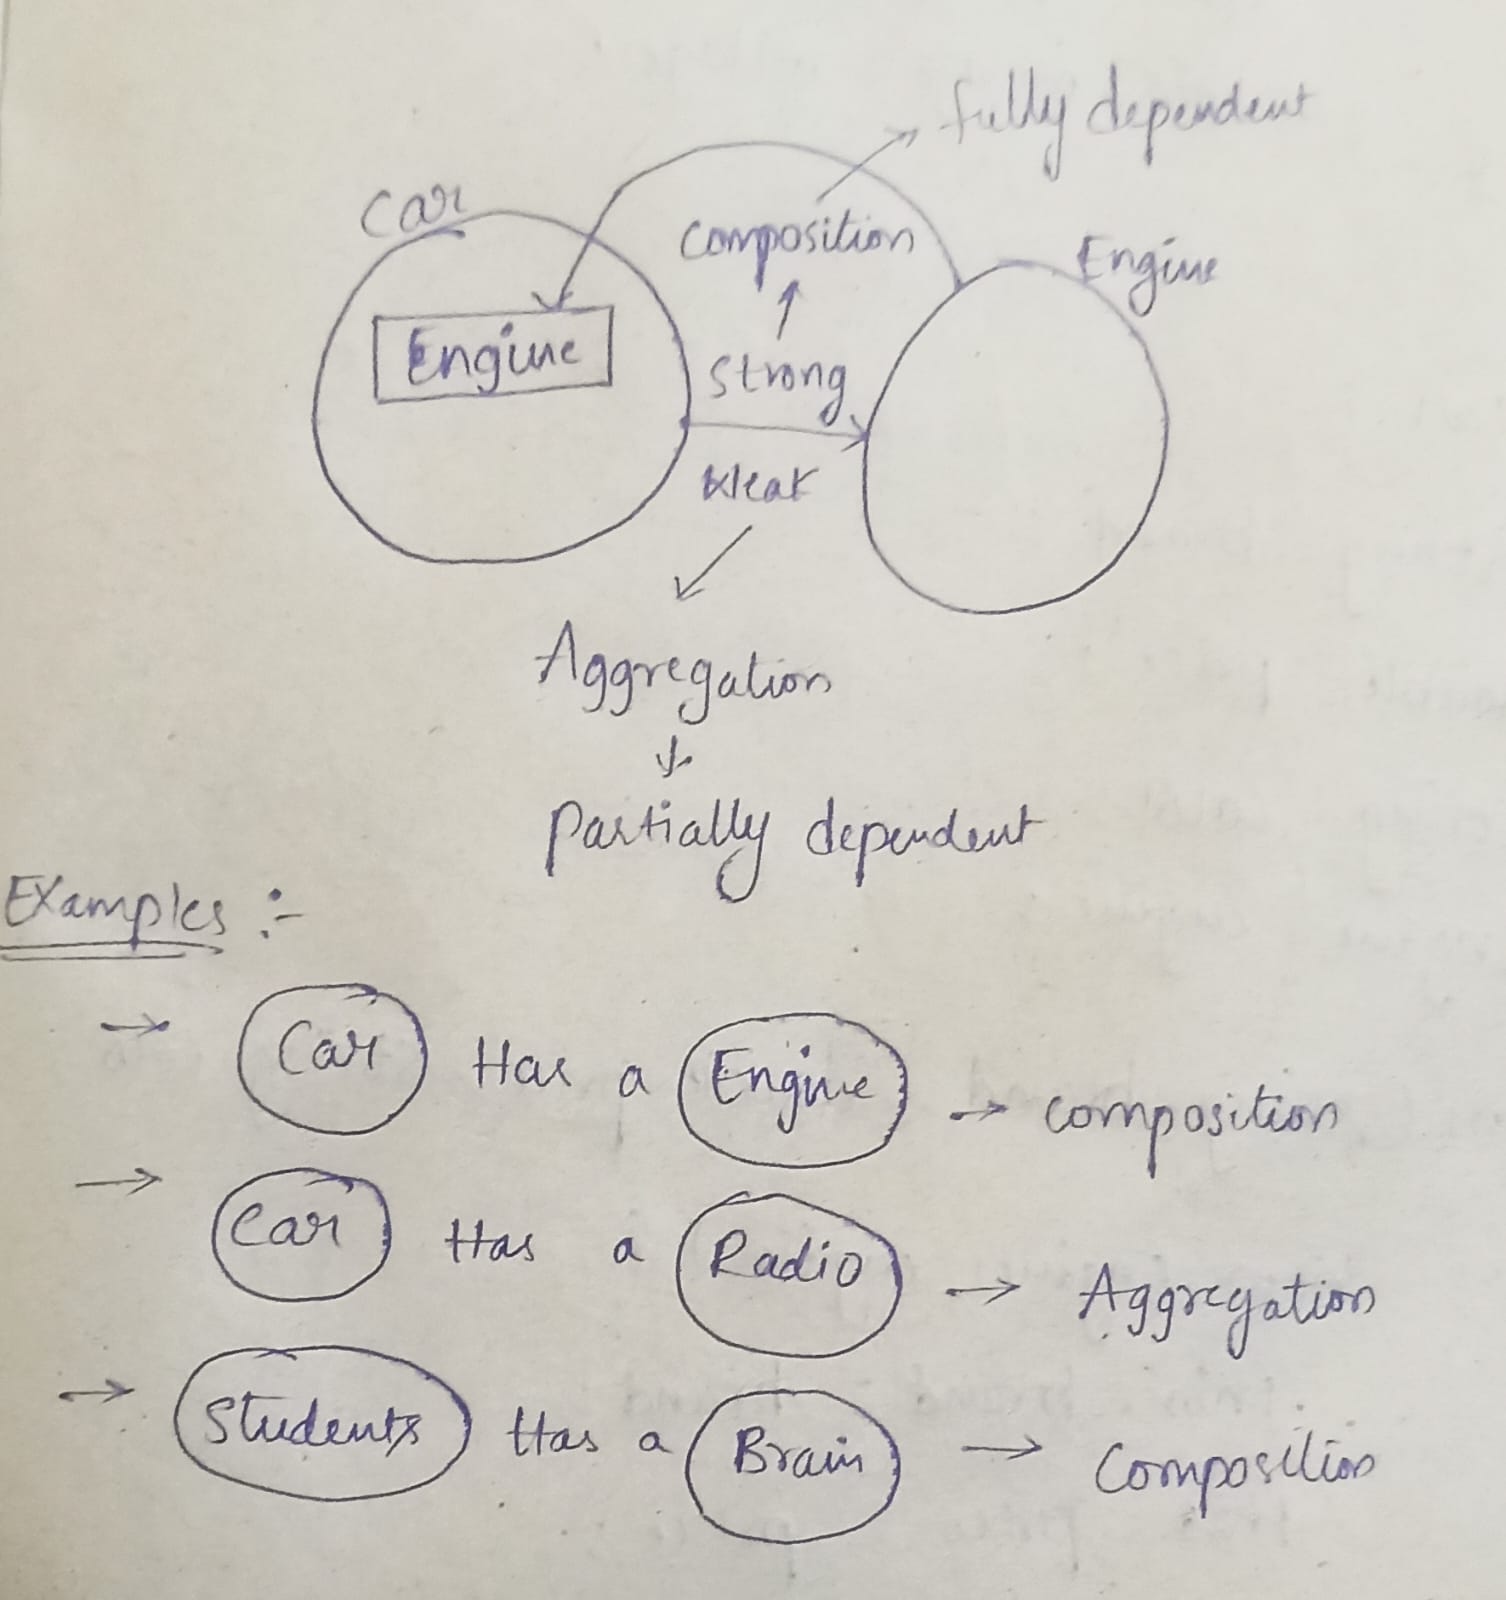 fully dependent
Car
composition
Engine
Engine
Strong
Weak
Aggregation
Partially dependent
Examples :-
→ Car Has a Engine → composition
→ Car Has a Radio → Aggregation
→ Students Has a Brain → Composition